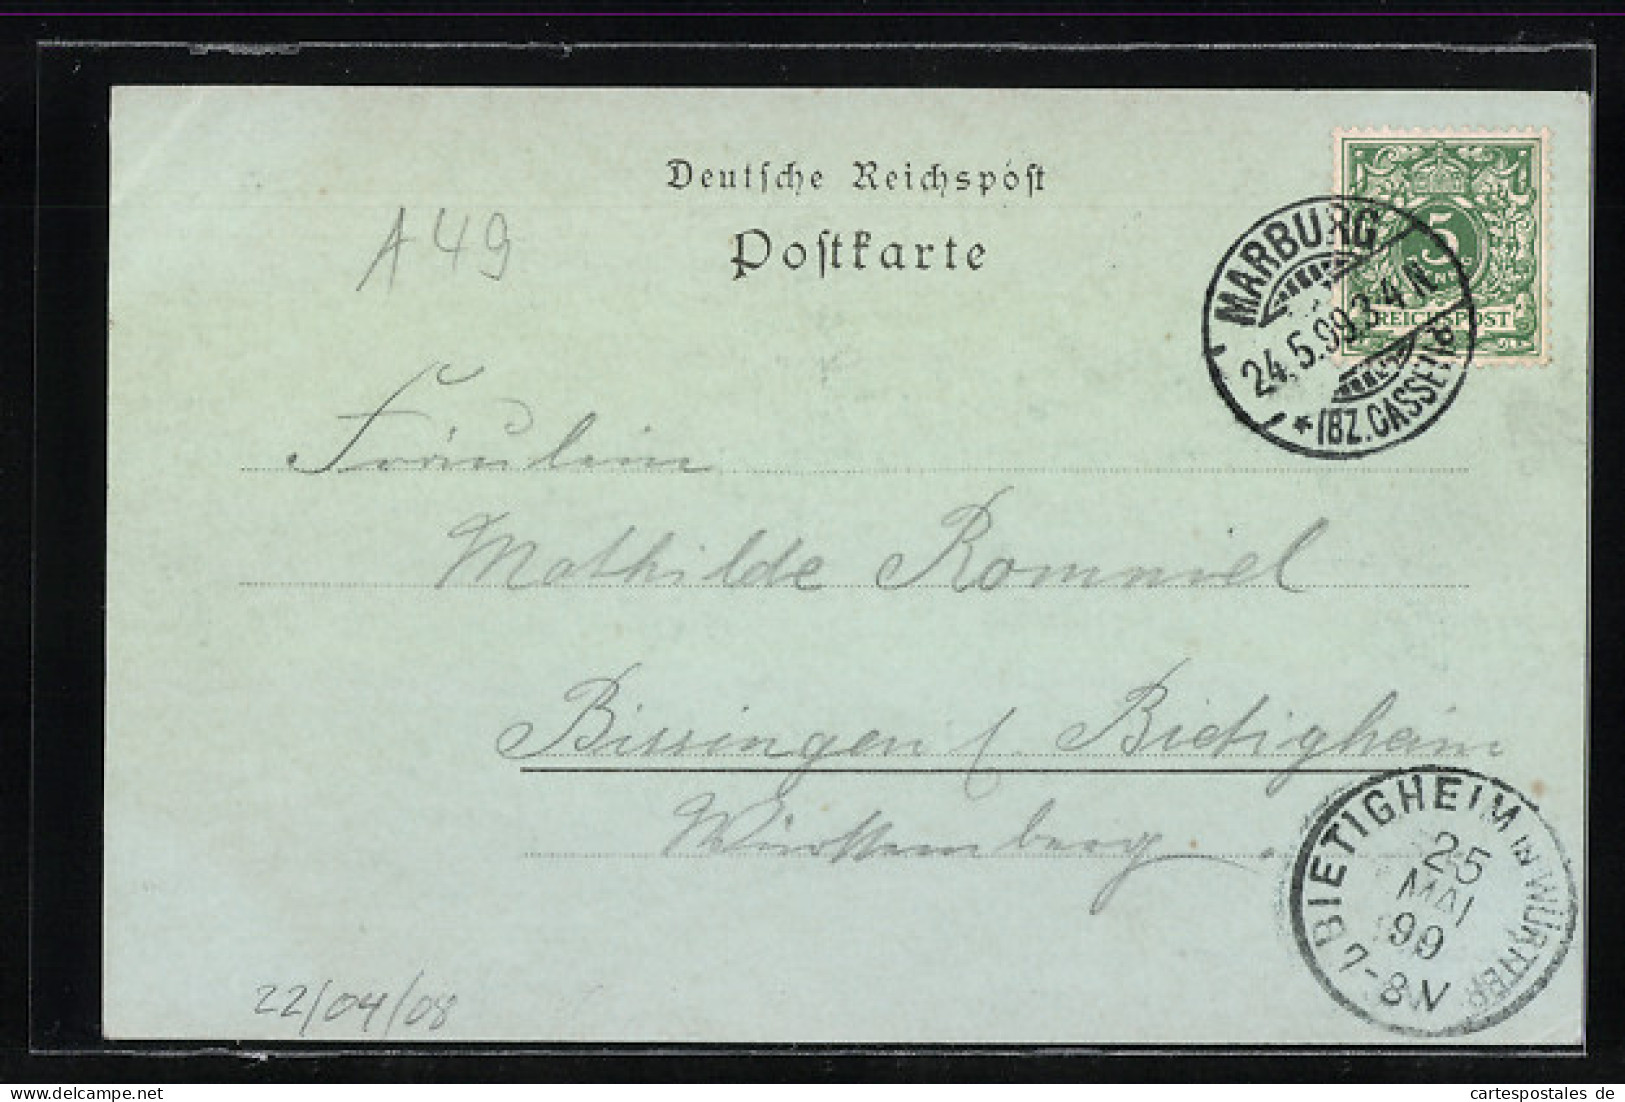 Deutsche Reichspost
Postkarte
A 49
5
REICHSPOST
MARBURG
24.5.99.3-4 N.
* (BZ. CASSEL)
Fräulein
Mathilde Rommel
Bissingen / Bietigheim
Württemberg.
BIETIGHEIM IN WÜRTTEB
25
MAI
99
7-8 N
22/04/08
cartespostales de